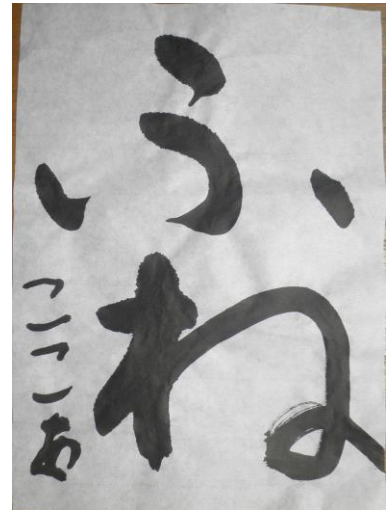 ふね
ここあ